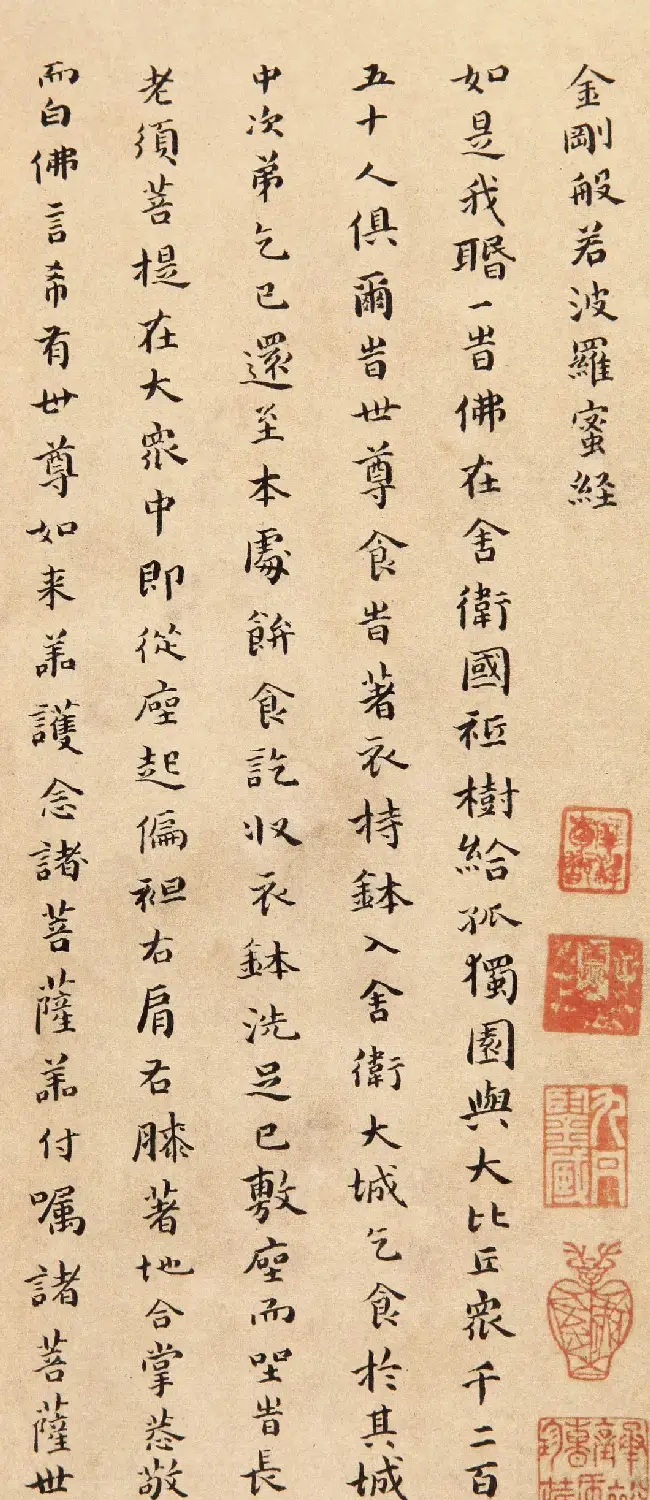 金剛般若波羅蜜経
如是我聞一旹佛在舍衛國祇樹給孤獨園與大比丘衆千二百
五十人俱爾旹世尊食旹著衣持鉢入舍衛大城乞食扵其城
中次弟乞已還至本處飯食訖収衣鉢洗足已敷座而坐旹長
老須菩提在大衆中即從座起偏袒右肩右膝著地合掌恭敬
而白佛言希有世尊如来善護念諸菩薩善付囑諸菩薩世